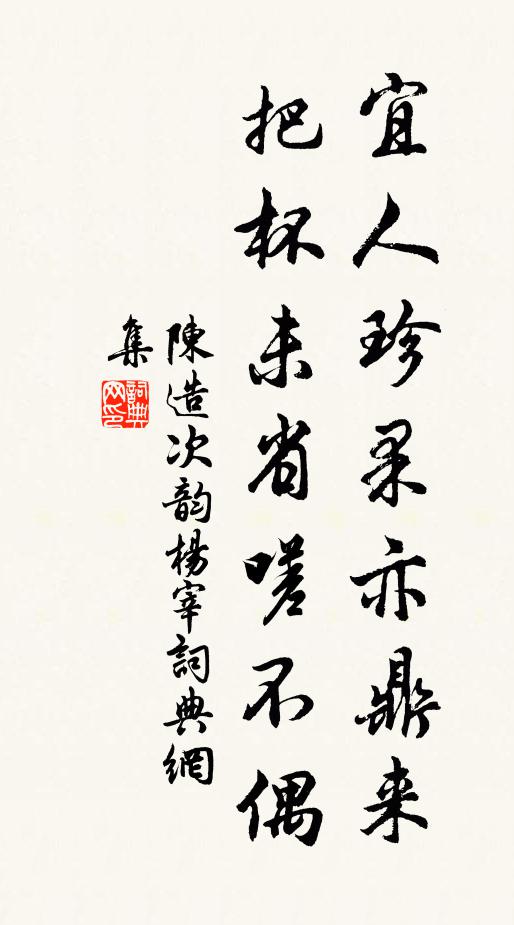 宜人珍果亦鼎来
把杯未省嗟不偶
陳造次韵楊宰詞典網
集
詞典
网印